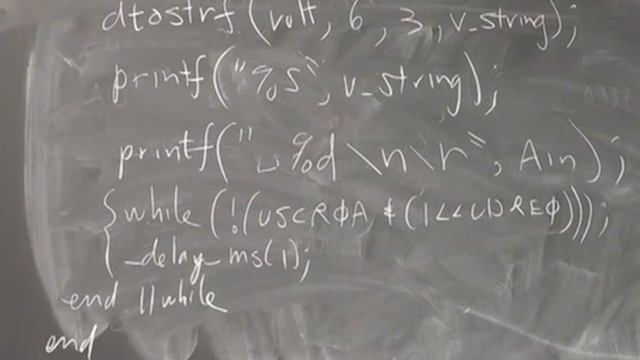 dtostrf(volt, 6, 3, v_string);
printf("%s", v_string);
printf("␣%d\n\r", Ain);
{while (!(USCRØA & (1<<UDREØ)));
_delay_ms(1);
end //while
end